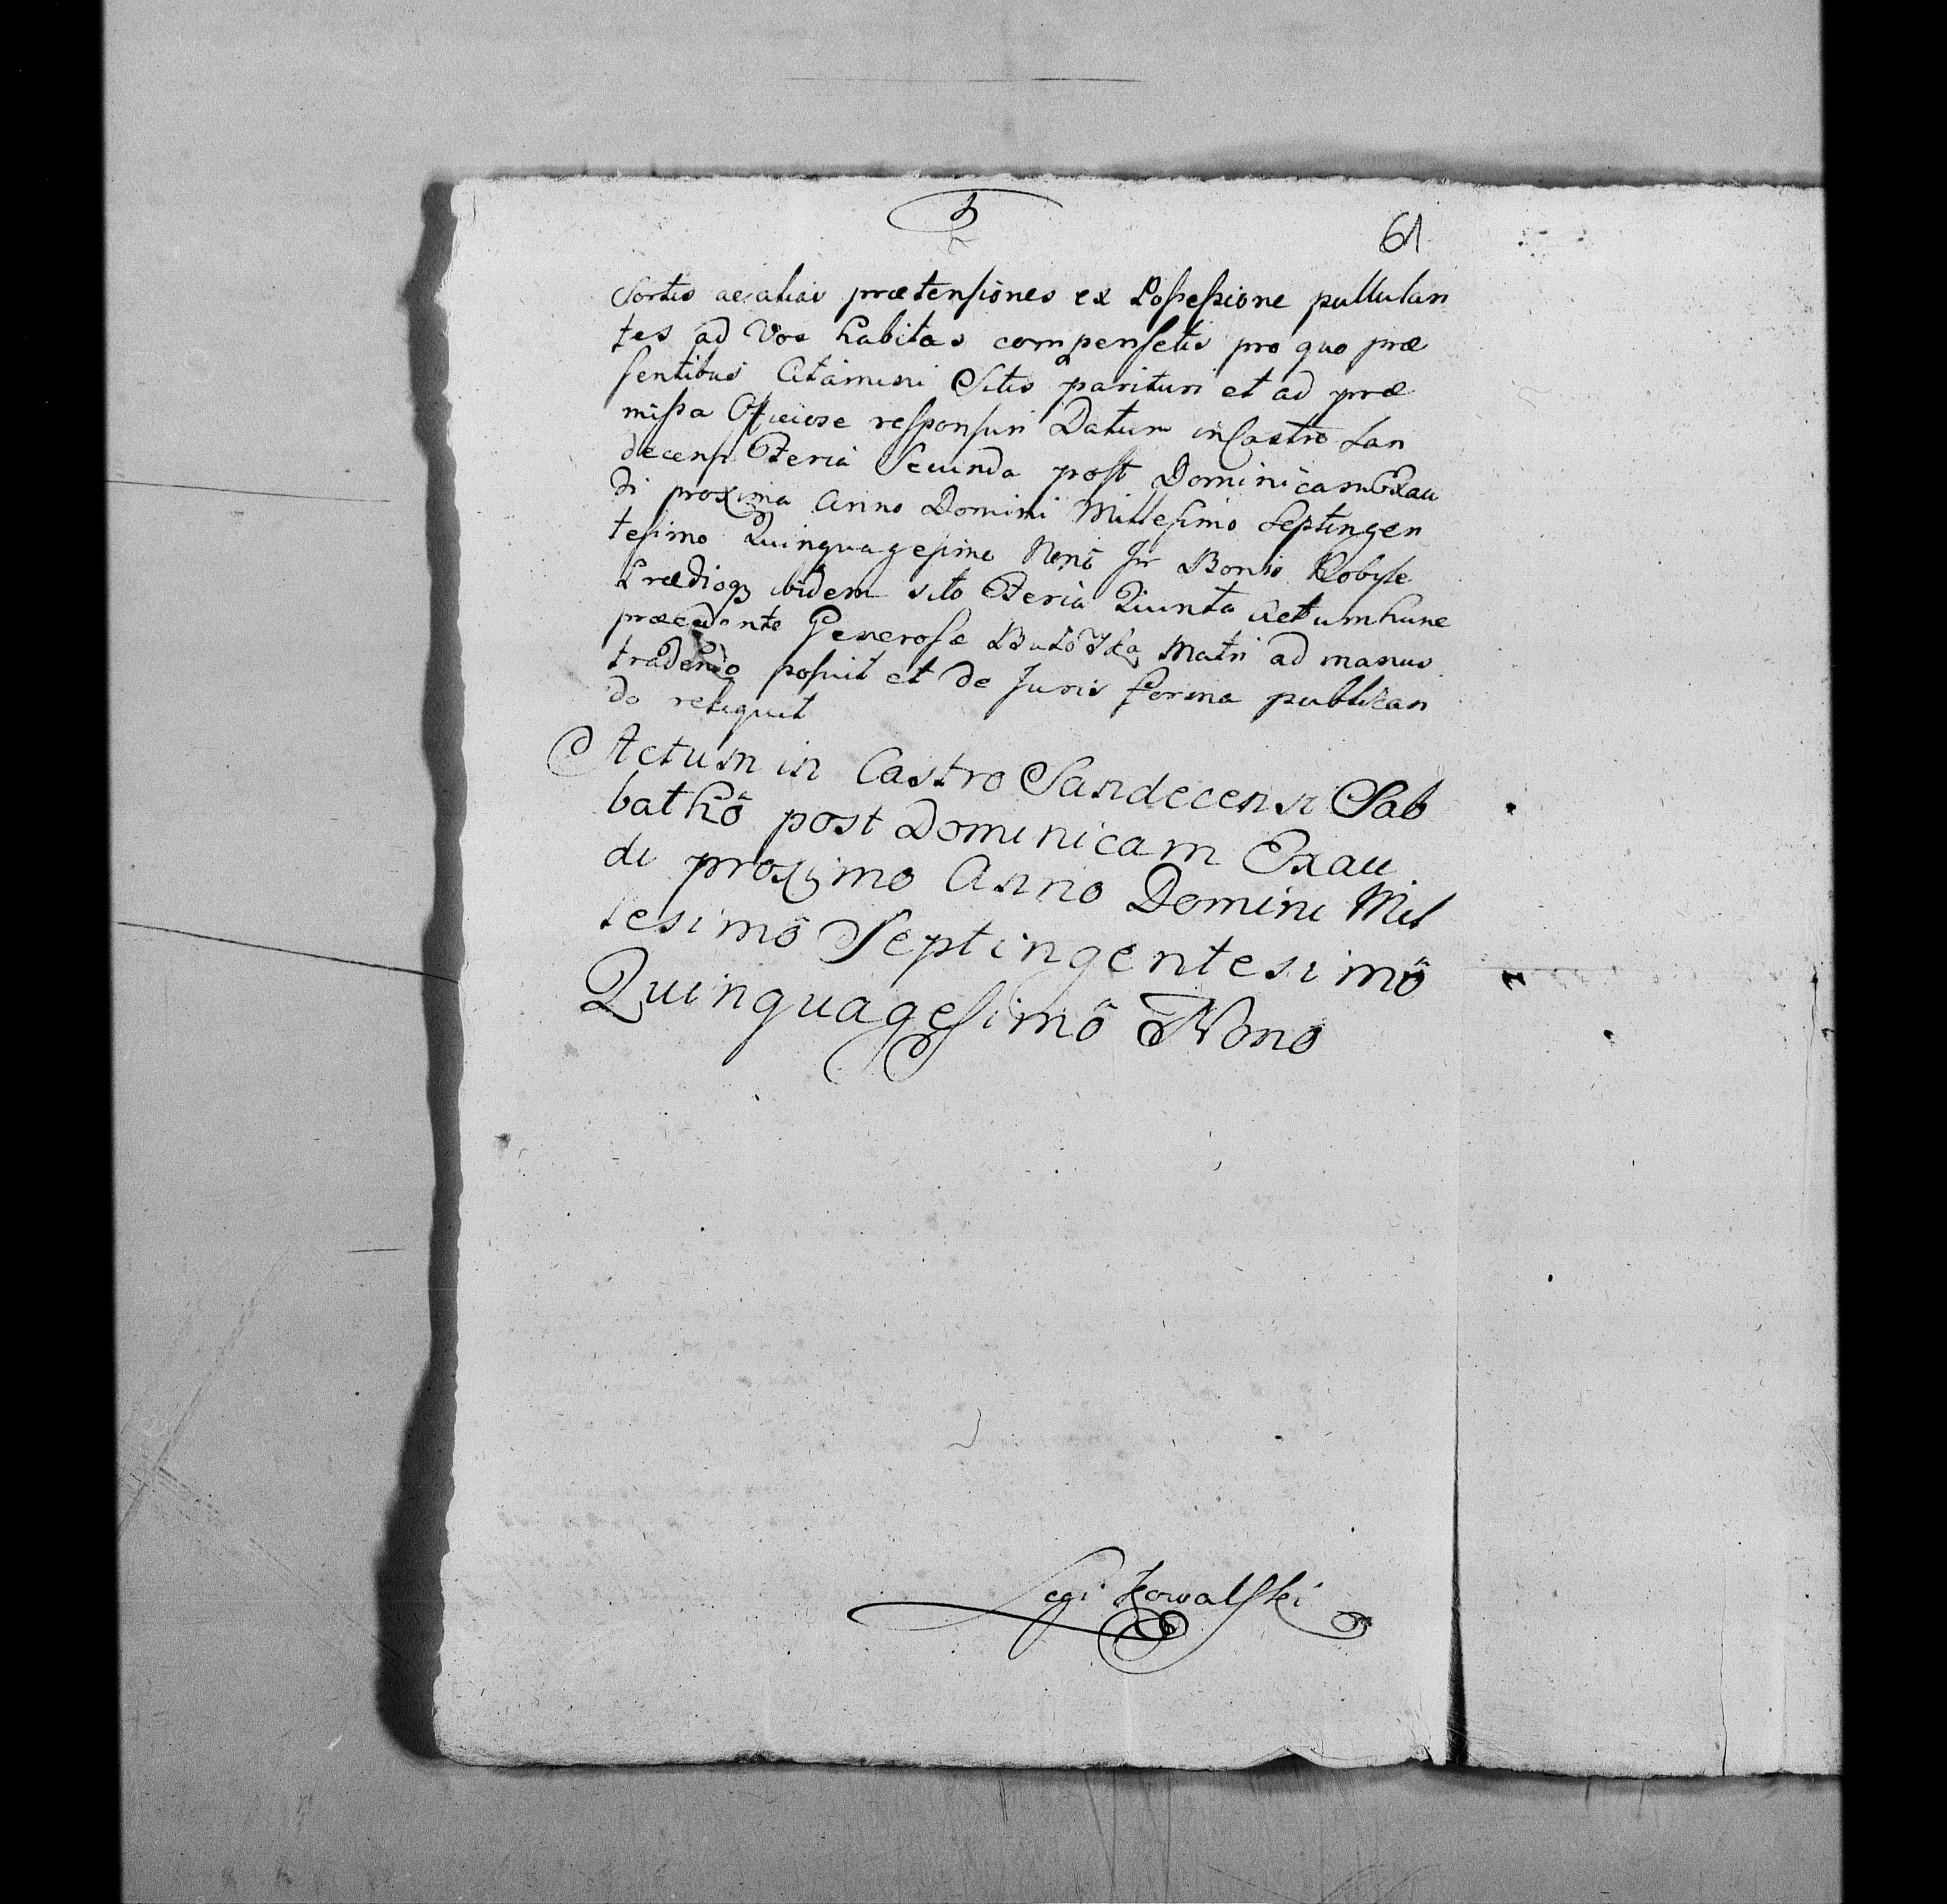 61
Sortis ac alias prætensiones ex Possessione pullulan
tes ad Vos habitas compensetis pro quo præ
sentibus Citamini Sitis parituri et ad præ
missa Officiose responsuri Datum in Castro San
decensi Feria Secunda post Dominicam Exau
di proxima Anno Domini Millesimo Septingen
tesimo Quinquagesimo Nonô In Bonis Kobyle
Prædioq3 ibidem sito Feria Quinta Actum hunc
præcedente Generosæ Matri ad manus
tradendo posuit et de Juris forma publican
do reliquit
Actum in Castro Sandecensi Sab
bathô post Dominicam Exau
di proximo Anno Domini Mil
lesimô Septingentesimô
Quinquagesimô Nono
Legi Kowalski